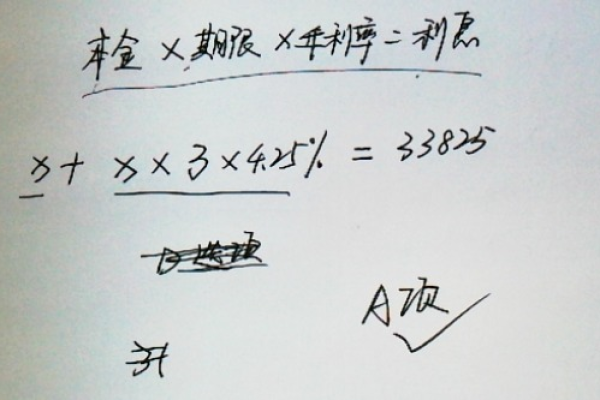 本金×期限×年利率=利息
x+x×3×4.25%=33825
A项